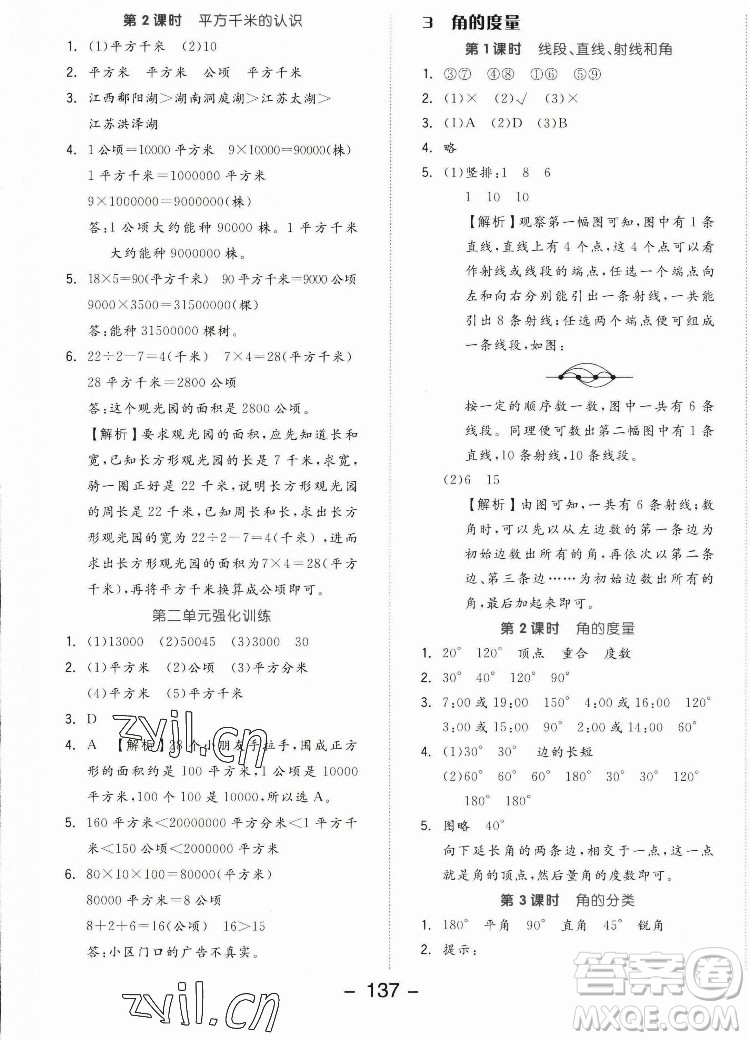 第2课时 平方千米的认识
1. (1)平方千米 (2)10
2. 平方米 平方米 公顷 平方千米
3. 江西鄱阳湖＞湖南洞庭湖＞江苏太湖＞
江苏洪泽湖
4. 1公顷=10000平方米 9×10000=90000(株)
1平方千米=1000000平方米
9×1000000=9000000(株)
答:1公顷大约能种90000株。1平方千米
大约能种9000000株。
5. 18×5=90(平方千米) 90平方千米=9000公顷
9000×3500=31500000(棵)
答:能种31500000棵树。
6. 22÷2-7=4(千米) 7×4=28(平方千米)
28平方千米=2800公顷
答:这个观光园的面积是2800公顷。
【解析】要求观光园的面积,应先知道长和
宽,已知长方形观光园的长是7千米,求宽,
骑一圈正好是22千米,说明长方形观光园的
周长是22千米,根据长方形的周长和长,求
出观光园的宽为22÷2-7=4(千米),进而
求出长方形观光园的面积为7×4=28(平方
千米),再将平方千米换算成公顷即可。
第二单元强化训练
1. (1)13000 (2)50045 (3)3000 30
2. (1)平方米 (2)公顷 (3)平方分米
(4)平方米 (5)平方千米
3. D
4. A 【解析】28个小朋友手拉手,围成正方
形的面积约是100平方米,1公顷是10000
平方米,10000÷100=100(个),所以选A。
5. 160平方米＜20000000平方分米＜20公顷
＜150公顷＜2000000000平方米
6. 80×10×100=80000(平方米)
80000平方米=8公顷
8+2+6=16(公顷) 16＞15
答:小区门口的广告不真实。
3 角的度量
第1课时 线段、直线、射线和角
1. ③⑦ ④⑧ ①⑥ ⑤⑨
2. (1)× (2)√ (3)×
3. (1)A (2)D (3)B
4. 略
5. (1)竖排:1 8 6
1 10 10
【解析】观察第一幅图可知,图中有1条
直线,直线上有4个点,这4个点可以看
作射线或线段的端点,任选一个端点向
左和向右分别能引出一条射线,一共能
引出8条射线;任选两个端点便可组成
一条线段,如图:
按一定的顺序数一数,图中一共有6条
线段。同理便可数出第二幅图中有1条
直线,10条射线,10条线段。
(2)6 15
【解析】由图可知,一共有6条边;数
角时,可以先以从左边数的第一条边为
初始边数出所有的角,再以第二条
边、第三条边……为初始边数出所有的
角,最后加起来即可。
第2课时 角的度量
1. 20° 120° 顶点 重合 度数
2. 30° 40° 120° 90°
3. 7:00或19:00 150° 4:00或16:00 120°
3:00或15:00 90° 6:00或18:00 180°
4. (1)30° 30° 边的长短
(2)60° 60° 60° 180° 30° 60° 90°
180° 180°
5. 图略 40°
向下延长角的两条边,这两条边交于一点,这一点